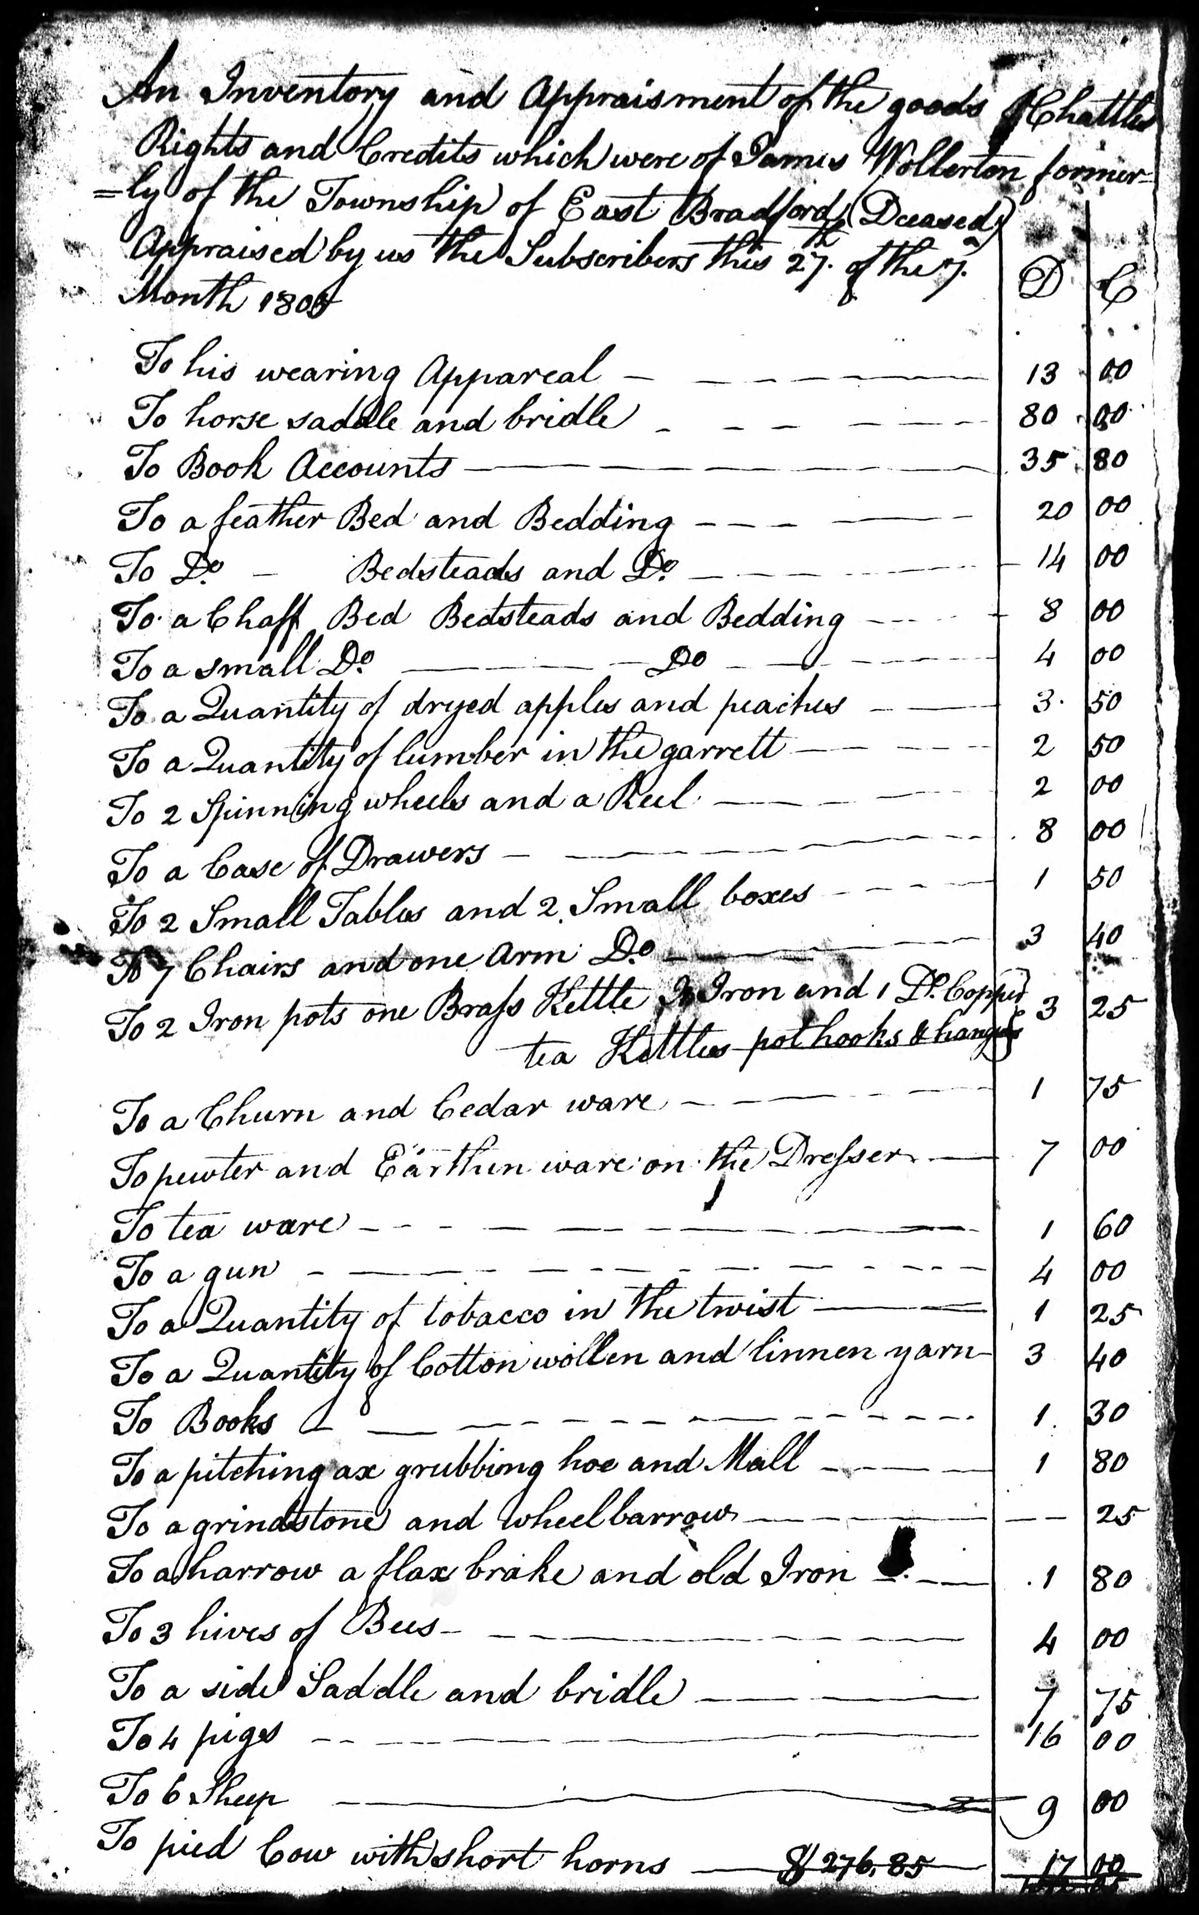 An Inventory and Appraisment of the goods & Chattles
Rights and Credits which were of James Wollerton former-
=ly of the Township of East Bradford (Dceased)
Appraised by us the Subscribers this 27th of the 7
Month 180 D C
To his wearing Appareal 13 00
To horse saddle and bridle 80 00
To Book Accounts 35 80
To a feather Bed and Bedding 20 00
To Do Bedsteads and Do 14 00
To a Chaff Bed Bedsteads and Bedding 8 00
To a small Do Do 4 00
To a Quantity of dryed apples and peaches 3 50
To a Quantity of lumber in the garrett 2 50
To 2 Spinning wheels and a Reel 2 00
To a Case of Drawers 8 00
To 2 Small Tables and 2 Small boxes 1 50
To 7 Chairs and one Arm Do 3 40
To 2 Iron pots one Brass Kettle Iron and 1 Do Copper 3 25
tea Kettles pot hooks & hangers
To a Churn and Cedar ware 1 75
To pewter and Earthen ware on the Dresser 7 00
To tea ware 1 60
To a gun 4 00
To a Quantity of tobacco in the twist 1 25
To a Quantity of Cotton wollen and linnen yarn 3 40
To Books 1 30
To a pitching ax grubbing hoe and Mall 1 80
To a grindstone and wheelbarrow 25
To a harrow a flax brake and old Iron 1 80
To 3 hives of Bees 4 00
To a side Saddle and bridle 7 75
To 4 pigs 16 00
To 6 Sheep 9 00
To pied Cow with short horns $276.85 17 00